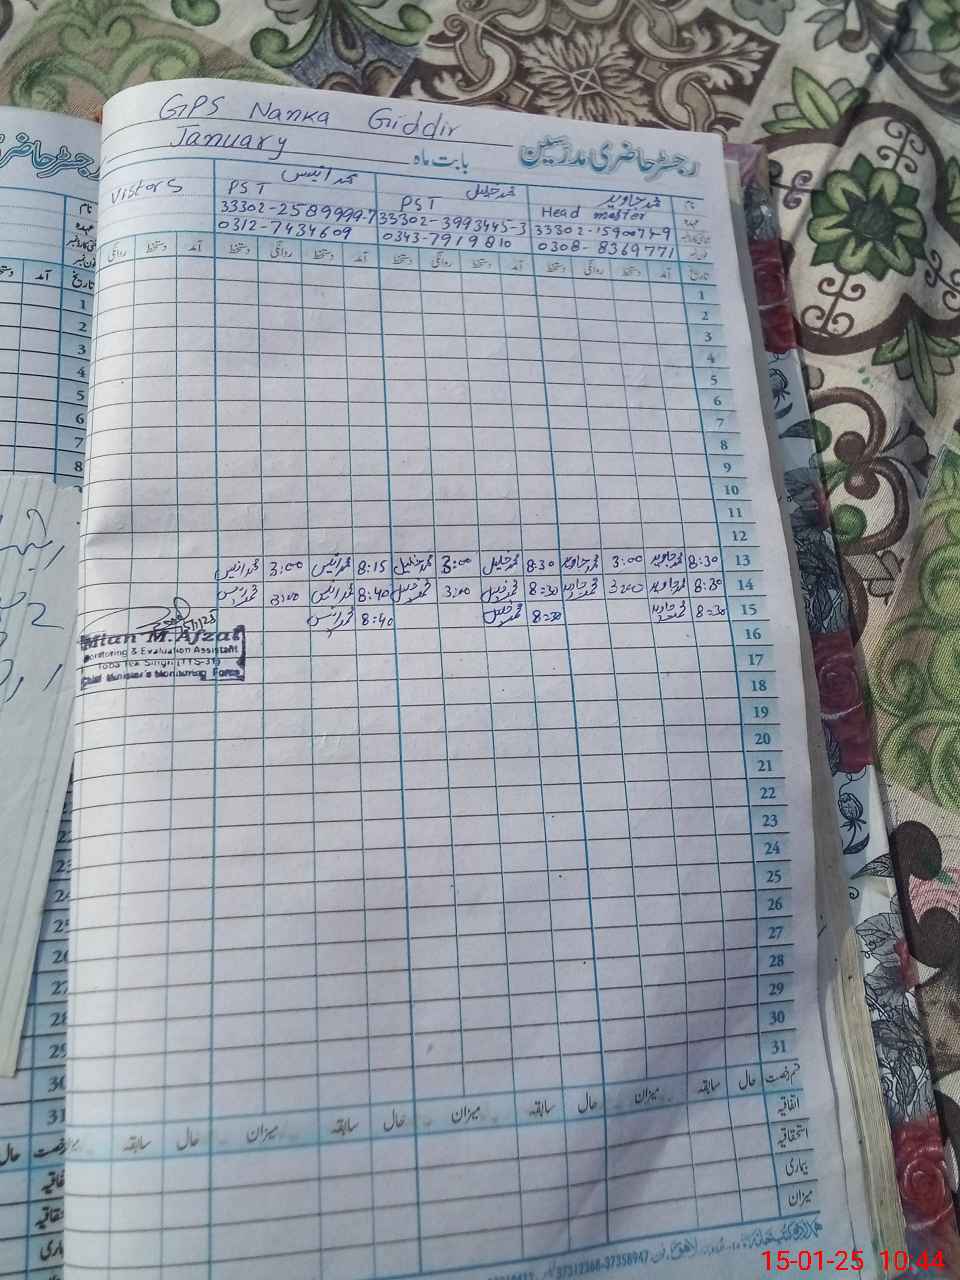 GPS Nanka Giddir
January
بابت ماہ
رجسٹر حاضری مدرسین
Vistors
محمد انیس
محمد خلیل
محمد جاوید
نام
PST
PST
Head master
عہدہ
33302-2589999-7
33302-3993445-3
0312-7434609
0343-7919810
0308-8369771
فون نمبر
روانگی دستخط آمد دستخط روانگی دستخط آمد دستخط روانگی دستخط آمد دستخط روانگی دستخط آمد تاریخ
1
2
3
4
5
6
7
8
9
10
11
12
محمد انیس 3:00 محمد انیس 8:15 محمد خلیل 3:00 محمد خلیل 8:30 محمد جاوید 3:00 محمد جاوید 8:30 13
محمد انیس 3:00 محمد انیس 8:40 محمد خلیل 3:00 محمد خلیل 8:30 محمد جاوید 3:00 محمد جاوید 8:30 14
محمد انیس 8:40 محمد خلیل 8:30 محمد جاوید 8:30 15
Mian M. Afzal
Monitoring & Evaluation Assistant
Toba Tek Singh (TTS-31)
Chief Minister's Monitoring Force
16
17
18
19
20
21
22
23
24
25
26
27
28
29
30
31
سابقہ حال میزان سابقہ حال میزان سابقہ حال میزان سابقہ حال قسم رخصت
اتفاقیہ
استحقاقیہ
بیماری
میزان
37312368-37358947
15-01-25 10:44